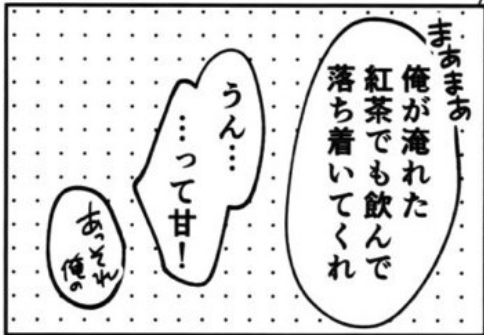 まあまあ
俺が淹れた
紅茶でも飲んで
落ち着いてくれ
うん…
…って甘！
あっそれ
俺の